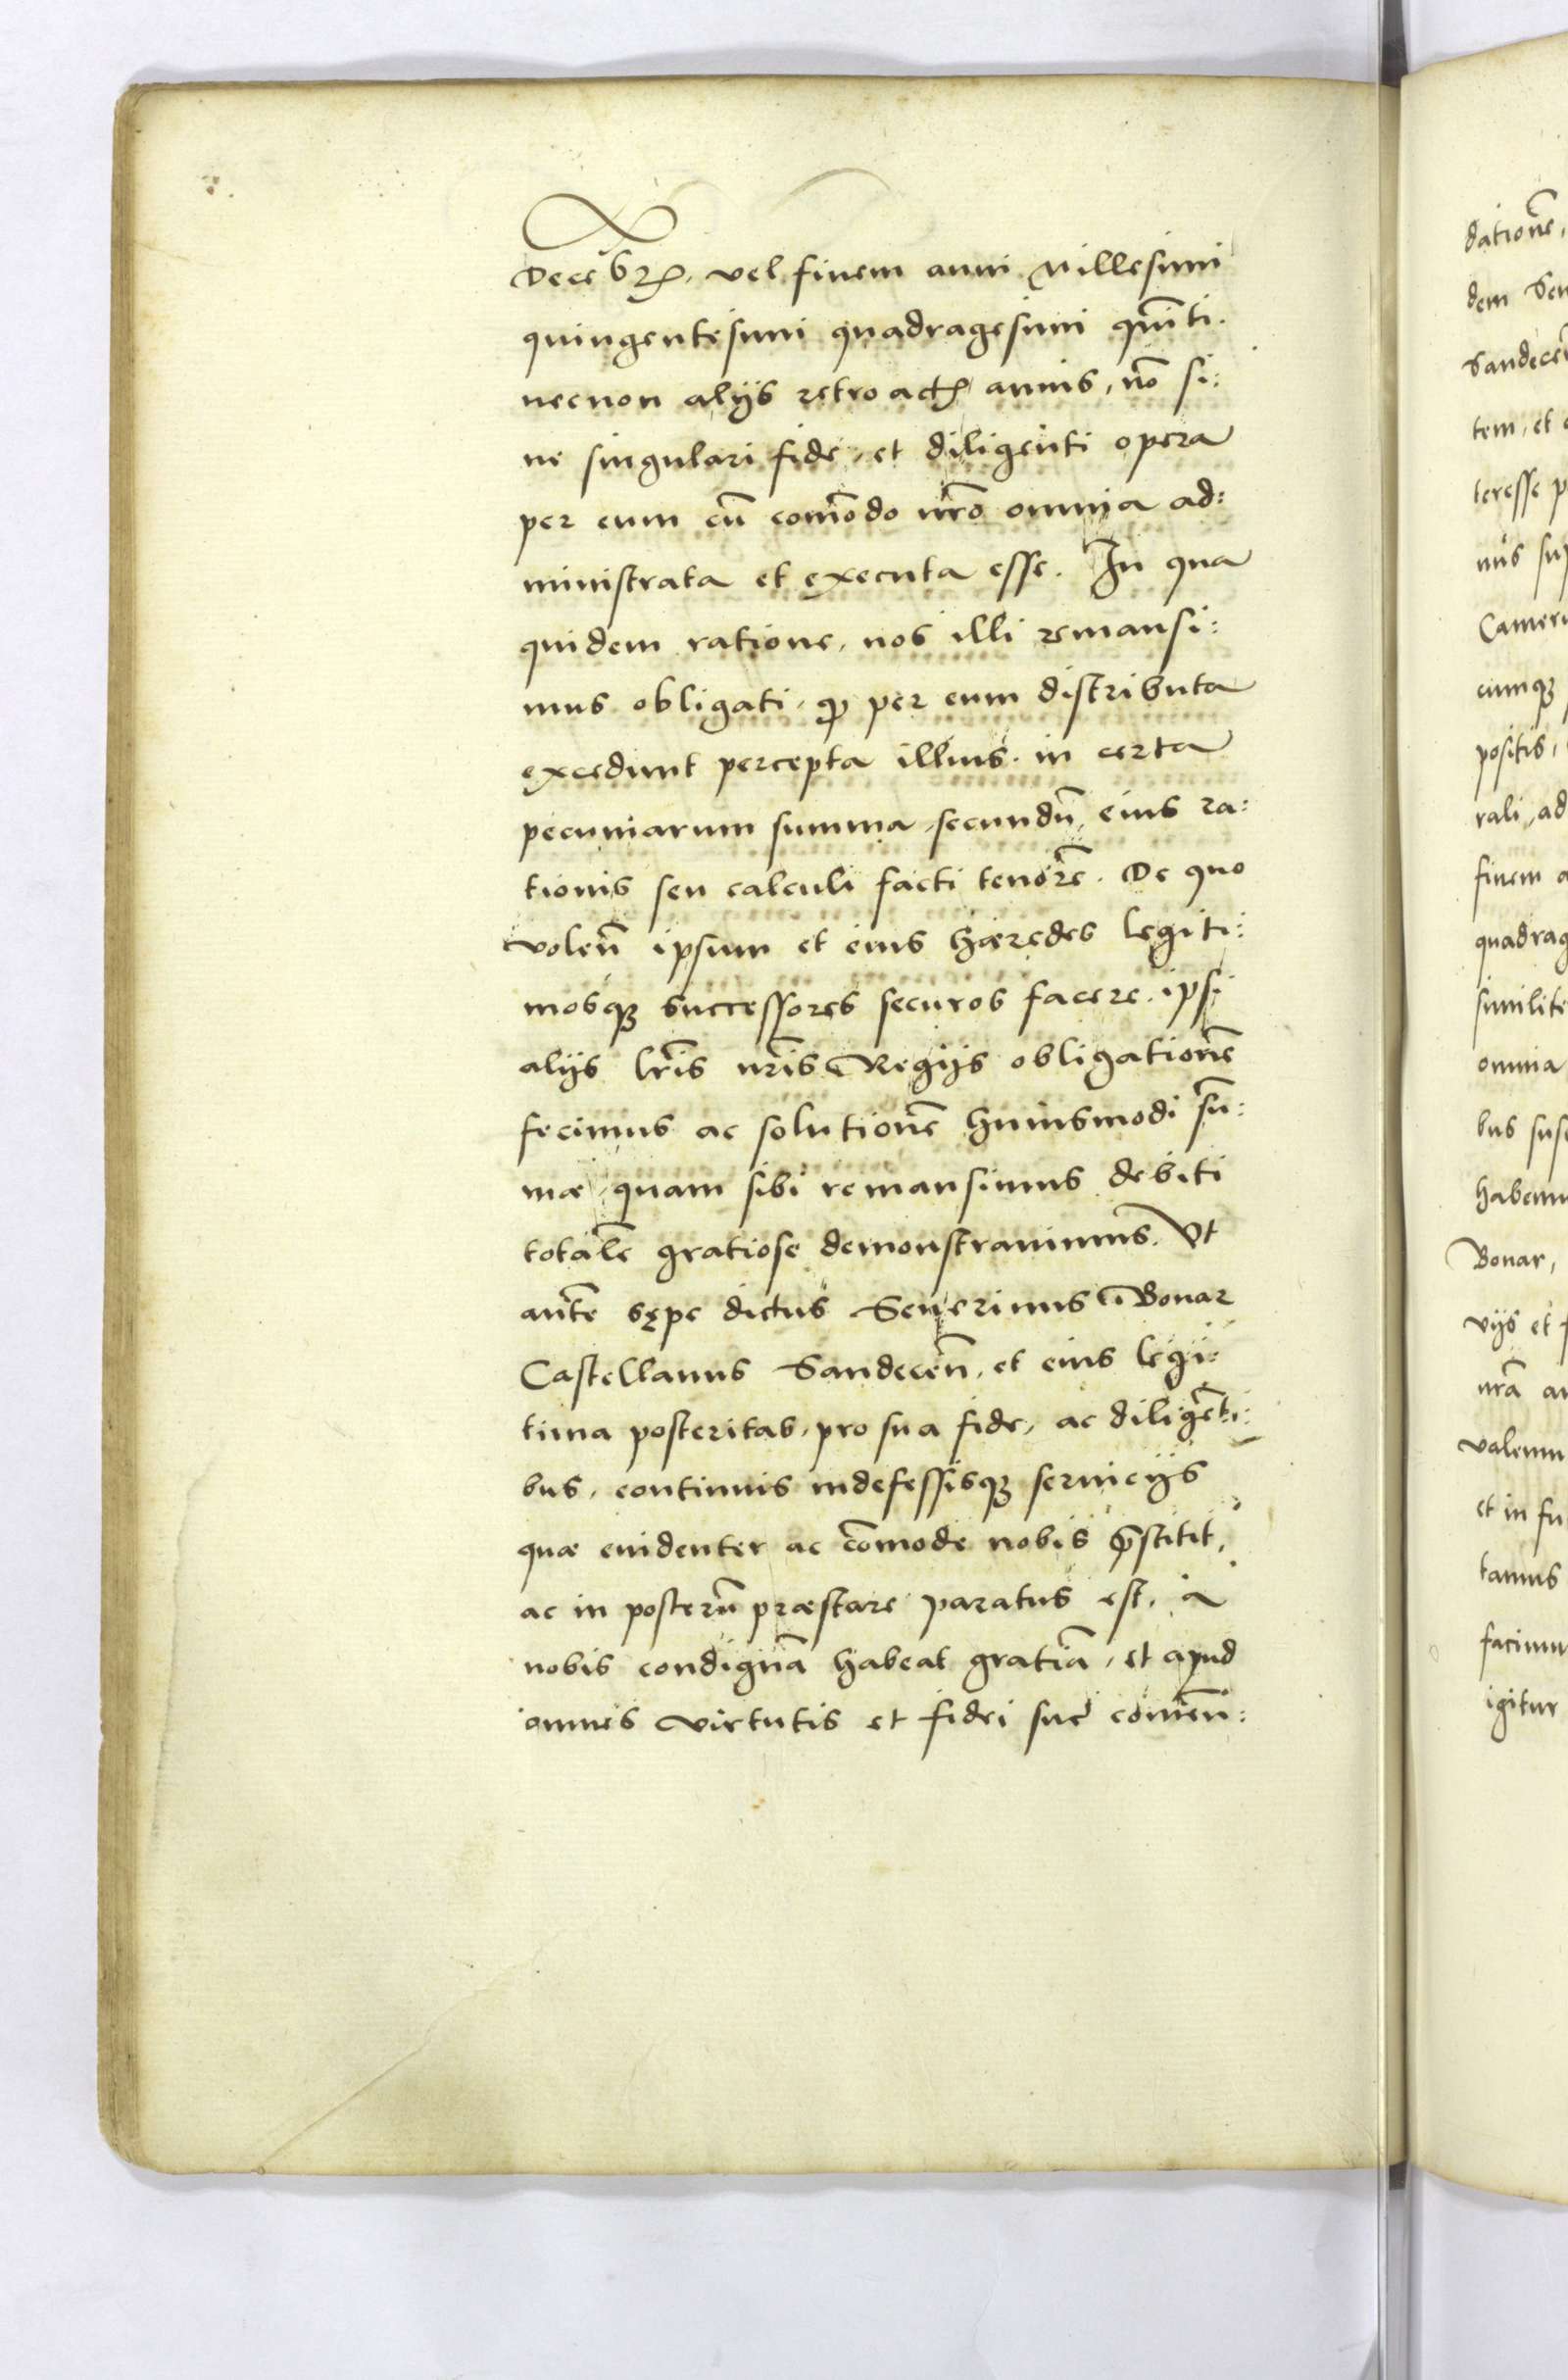 Decēbrꝭ, vel finem anni Millesimi
quingentesimi quadragesimi quīnti.
necnon alijs retroactꝭ annis, nō si:
ne singulari fide, et diligenti opera
per eum cū com̄odo nr̄o omnia ad:
ministrata et executa esse. In qua
quidem ratione, nos illi remansi:
mus obligati, qꝫ per eum distributa
excedunt percepta illius. in certa
pecuniarum summa, secundū eius ra:
tionis seu calculi facti tenorē. De quo
volen̄ ipsum et eius hæredes legiti:
mosqꝫ successores securos facere. ipsi
alijs lr̄is nr̄is Regijs obligationē
fecimus ac solutionē huiusmodi sū:
mæ, quam sibi remansimus debiti
totalē gratiose demonstrauimus. Vt
antē sępe dictus Seuerinus Bonar
Castellanus Sandecen̄, et eius legi:
tima posteritas, pro sua fide, ac diligēti:
bus, continuis indefessisqꝫ seruicijs
quæ euidenter ac cōmode nobis p̄stitit,
ac in posterū præstare paratus est, a
nobis condignā habeat gratiā, et apud
omnes virtutis et fidei suę com̄en:
dationē,
dem Seu
Sandecen̄
tem, et
teresse p
nus sup
Camer
cumqꝫ
positis,
rali, ad
finem a
quadrag
similite
omnia
bus sus
habemu
Bonar,
vijs et f
nr̄a au
valemu
et in fu
tamus
facimu
igitur